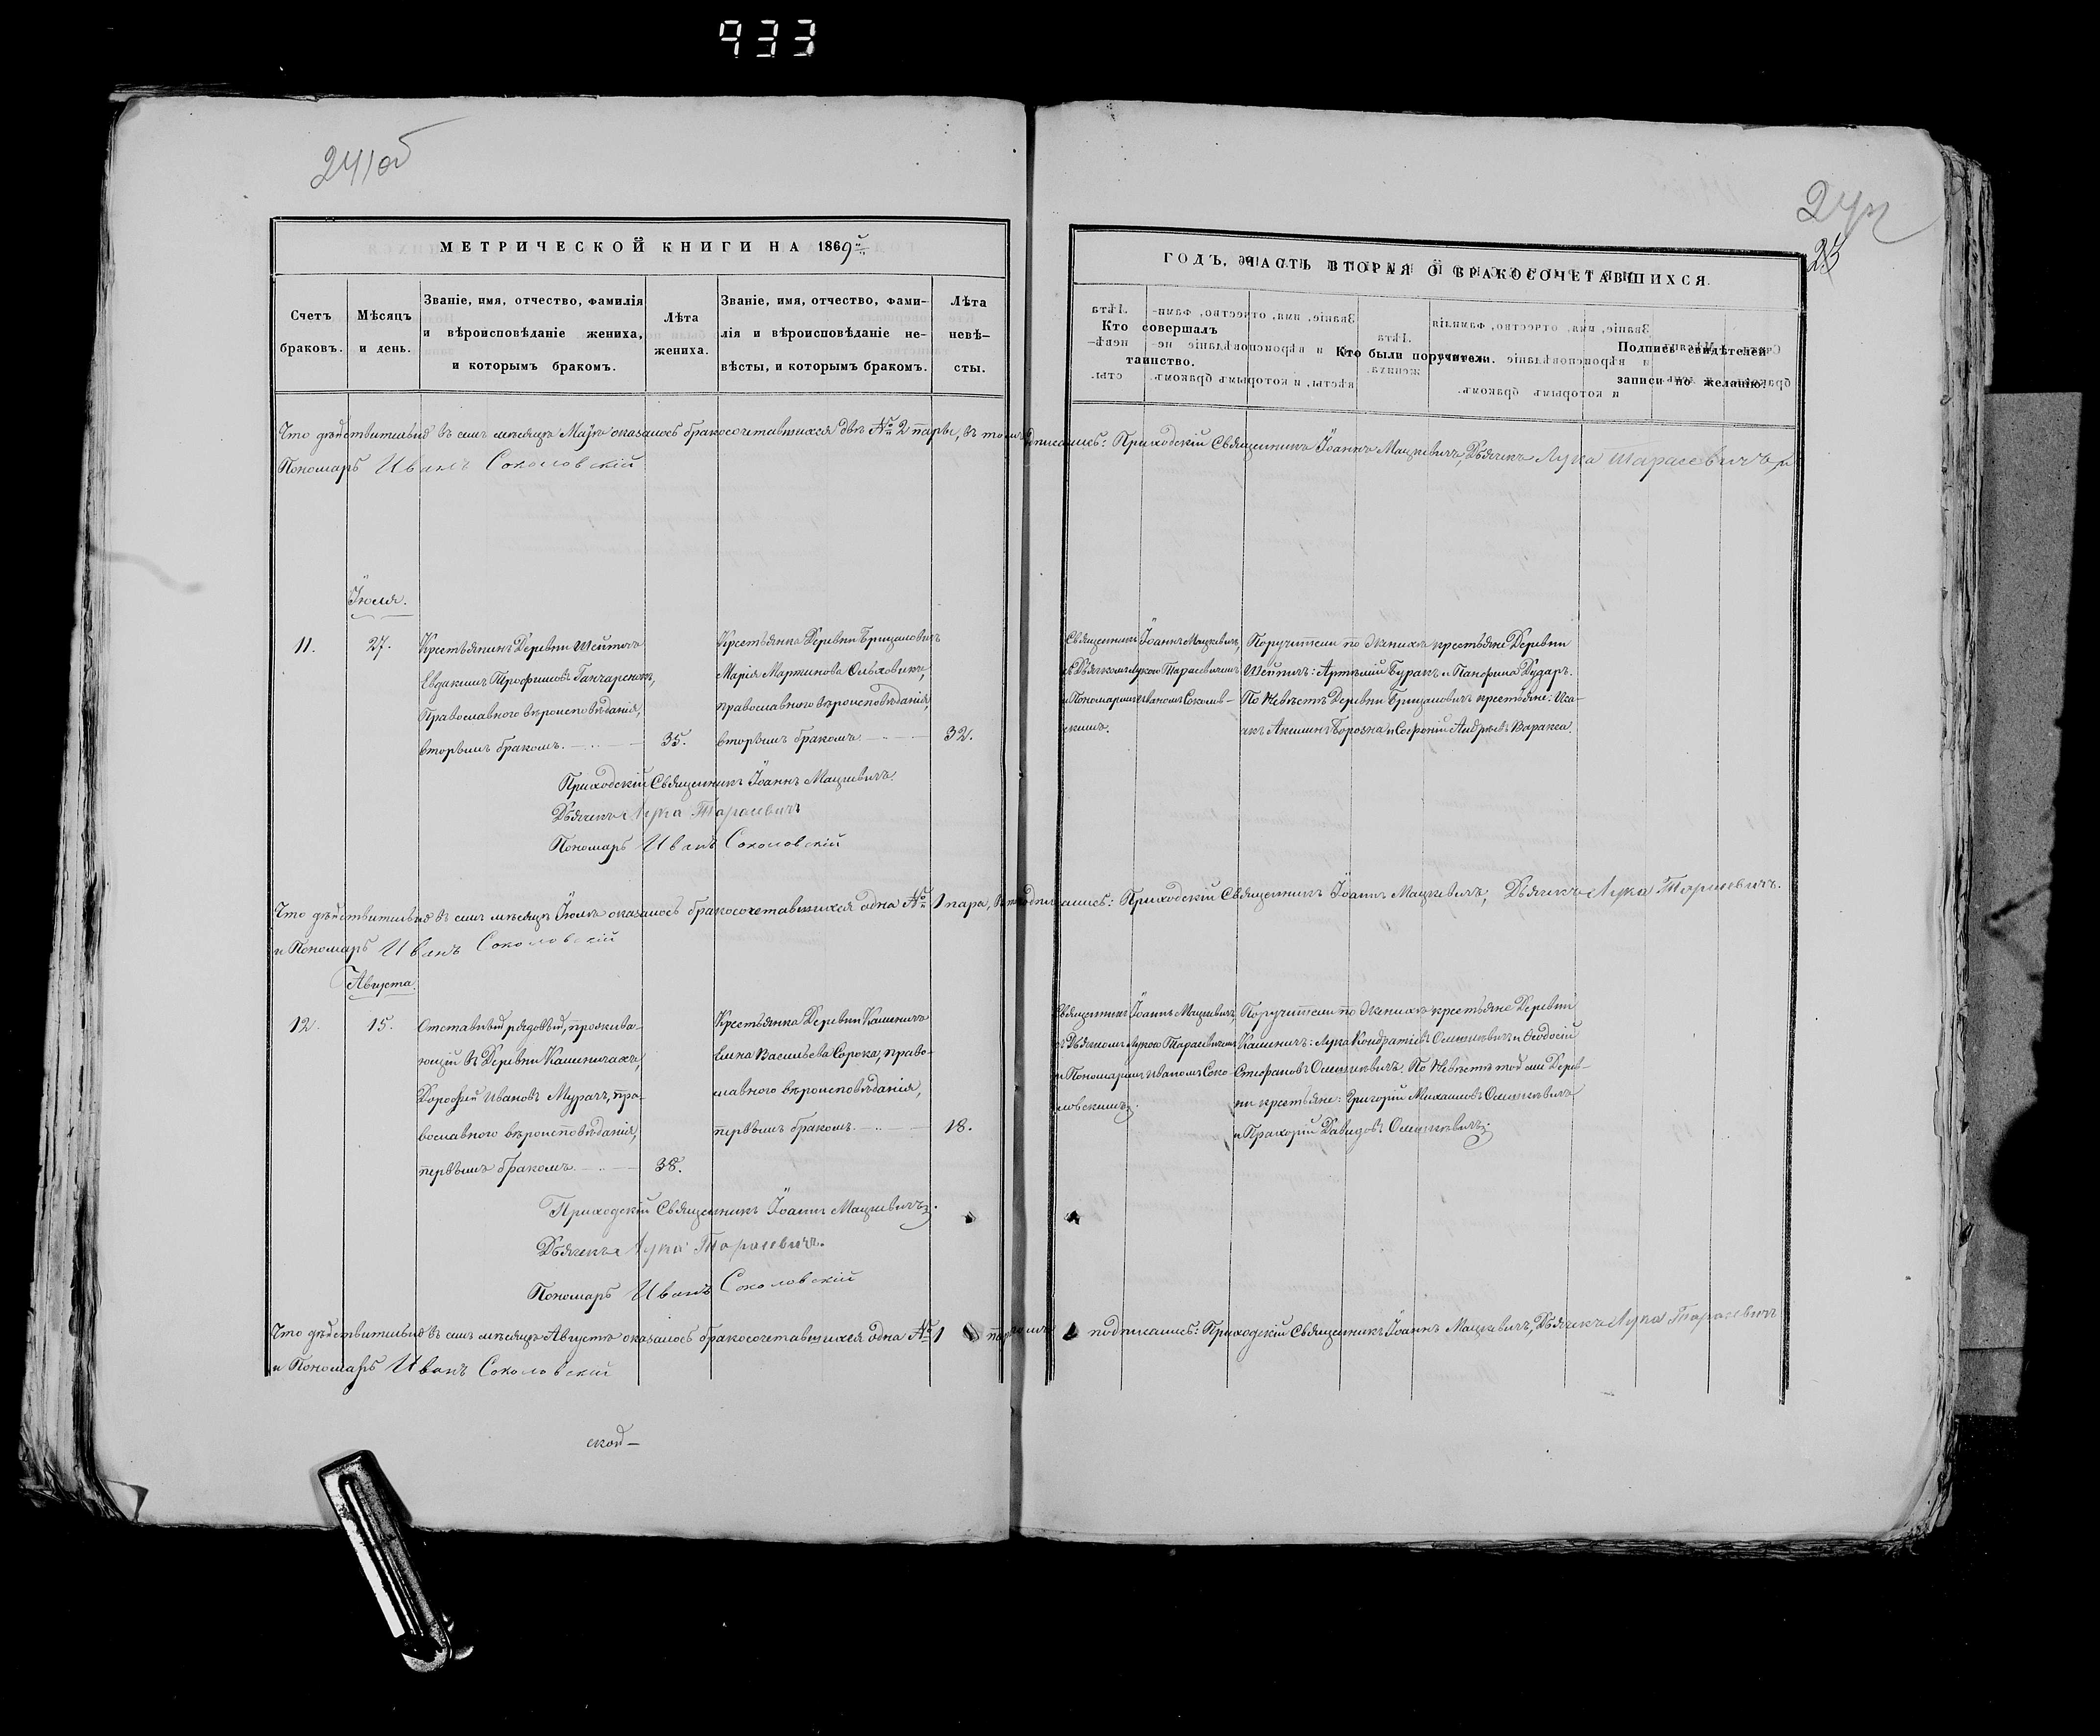 933
241об
242
23
МЕТРИЧЕСКОЙ КНИГИ НА 1869й
Счетъ браковъ.
Мѣсяцъ и день.
Званіе, имя, отчество, фамилія и вѣроисповѣданіе жениха, и которымъ бракомъ.
Лѣта жениха.
Званіе, имя, отчество, фамилія и вѣроисповѣданіе невѣсты, и которымъ бракомъ.
Лѣта невѣсты.
ГОДЪ, ЧАСТЬ ВТОРАЯ О БРАКОСОЧЕТАВШИХСЯ.
Кто совершалъ таинство.
Кто были поручители.
Подпись свидѣтелей записи по желанію.
Что дѣйствительно въ семъ мѣсяцѣ Маѣ оказалось бракосочетавшихся двѣ № 2 пары, въ томъ подписались: Приходскій Священникъ Іоаннъ Мацкевичъ, Дьячекъ Лука Тарасевичъ, и
Пономарь Иванъ Соколовскій
Іюля.
11.
27.
Крестьянинъ Деревни Шейтичъ
Евдакимъ Трофимовъ Ганчаренокъ,
Православнаго вѣроисповѣданія,
вторымъ бракомъ.
35.
Крестьянка Деревни Брицаловичъ
Марія Мартинова Ольховикъ,
православнаго вѣроисповѣданія,
вторымъ бракомъ.
32.
Священникъ Іоаннъ Мацкевичъ,
съ Дьячкомъ Лукою Тарасевичемъ
и Пономаремъ Иваномъ Соколов-
скимъ.
Поручители по Женихѣ крестьяне Деревни
Шейтичъ: Артемій Буракъ и Панфилъ Дударъ.
По Невѣстѣ Деревни Брицаловичъ крестьяне: Иса-
акъ Акимъ Борозна и Софроній Андреевъ Варакса.
Приходскій Священникъ Іоаннъ Мацкевичъ.
Дьячекъ Лука Тарасевичъ
Пономарь Иванъ Соколовскій
Что дѣйствительно въ семъ мѣсяцѣ Іюлѣ оказалось бракосочетавшихся одна № 1 пара, подписались: Приходскій Священникъ Іоаннъ Мацкевичъ, Дьячекъ Лука Тарасевичъ.
и Пономарь Иванъ Соколовскій
Августа.
12.
15.
Отставный рядовый, прожива-
ющій въ Деревни Каменичахъ,
Дорофей Ивановъ Мурачъ, пра-
вославнаго вѣроисповѣданія,
первымъ бракомъ.
38.
Крестьянка Деревни Каменичъ
Елена Васильева Сорока, право-
славнаго вѣроисповѣданія,
первымъ бракомъ.
18.
Священникъ Іоаннъ Мацкевичъ,
съ Дьячкомъ Лукою Тарасевичемъ
и Пономаремъ Иваномъ Соко-
ловскимъ.
Поручители по Женихѣ крестьяне Деревни
Каменичъ: Лука Кондратіевъ Олешкевичъ и Ѳеодосій
Стефановъ Олешкевичъ. По Невѣстѣ той же Дерев-
ни крестьяне: Григорій Михаиловъ Олешкевичъ
и Прахорій Давидовъ Олешкевичъ.
Приходскій Священникъ Іоаннъ Мацкевичъ.
Дьячекъ Лука Тарасевичъ.
Пономарь Иванъ Соколовскій
Что дѣйствительно въ семъ мѣсяцѣ Августѣ оказалось бракосочетавшихся одна № 1 подписались: Приходскій Священникъ Іоаннъ Мацкевичъ, Дьячекъ Лука Тарасевичъ
и Пономарь Иванъ Соколовскій
ской-